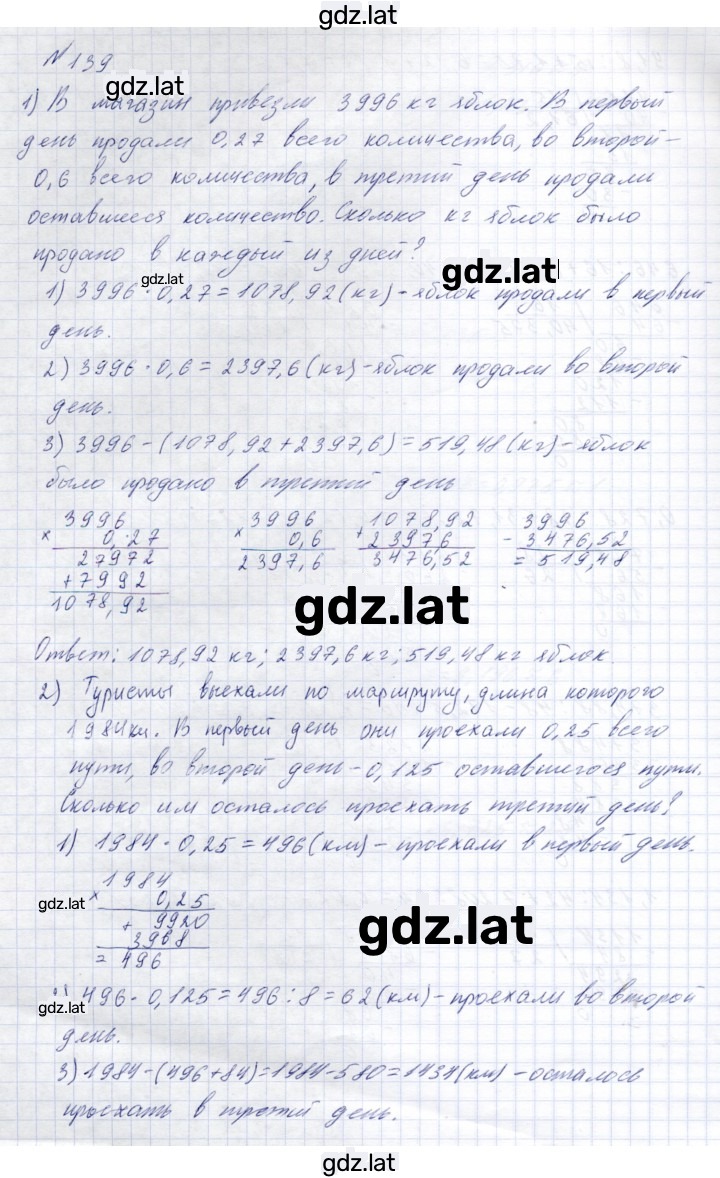 gdz.lat
№139
gdz.lat
1) В магазин привезли 3996 кг яблок. В первый
день продали 0,27 всего количества, во второй –
0,6 всего количества, в третий день продали
оставшееся количество. Сколько кг яблок было
продано в каждый из дней?
gdz.lat
gdz.lat
1) 3996 · 0,27 = 1078,92 (кг) – яблок продали в первый
день.
2) 3996 · 0,6 = 2397,6 (кг) – яблок продали во второй
день.
3) 3996 – (1078,92 + 2397,6) = 519,48 (кг) – яблок
было продано в третий день
3996 3996 1078,92 3996
× 0,27 × 0,6 + 2397,6 – 3476,52
27972 2397,6 3476,52 = 519,48
+ 7992
1078,92
gdz.lat
Ответ: 1078,92 кг; 2397,6 кг; 519,48 кг яблок.
2) Туристы выехали по маршруту, длина которого
1984 км. В первый день они проехали 0,25 всего
пути, во второй день – 0,125 оставшегося пути.
Сколько им осталось проехать третий день?
1) 1984 · 0,25 = 496 (км) – проехали в первый день.
1984
× 0,25
gdz.lat
+ 9920
3968
= 496
gdz.lat
496 · 0,125 = 496 : 8 = 62 (км) – проехали во второй
gdz.lat
день.
3) 1984 – (496 + 84) = 1984 – 580 = 1434 (км) – осталось
проехать в третий день.
gdz.lat